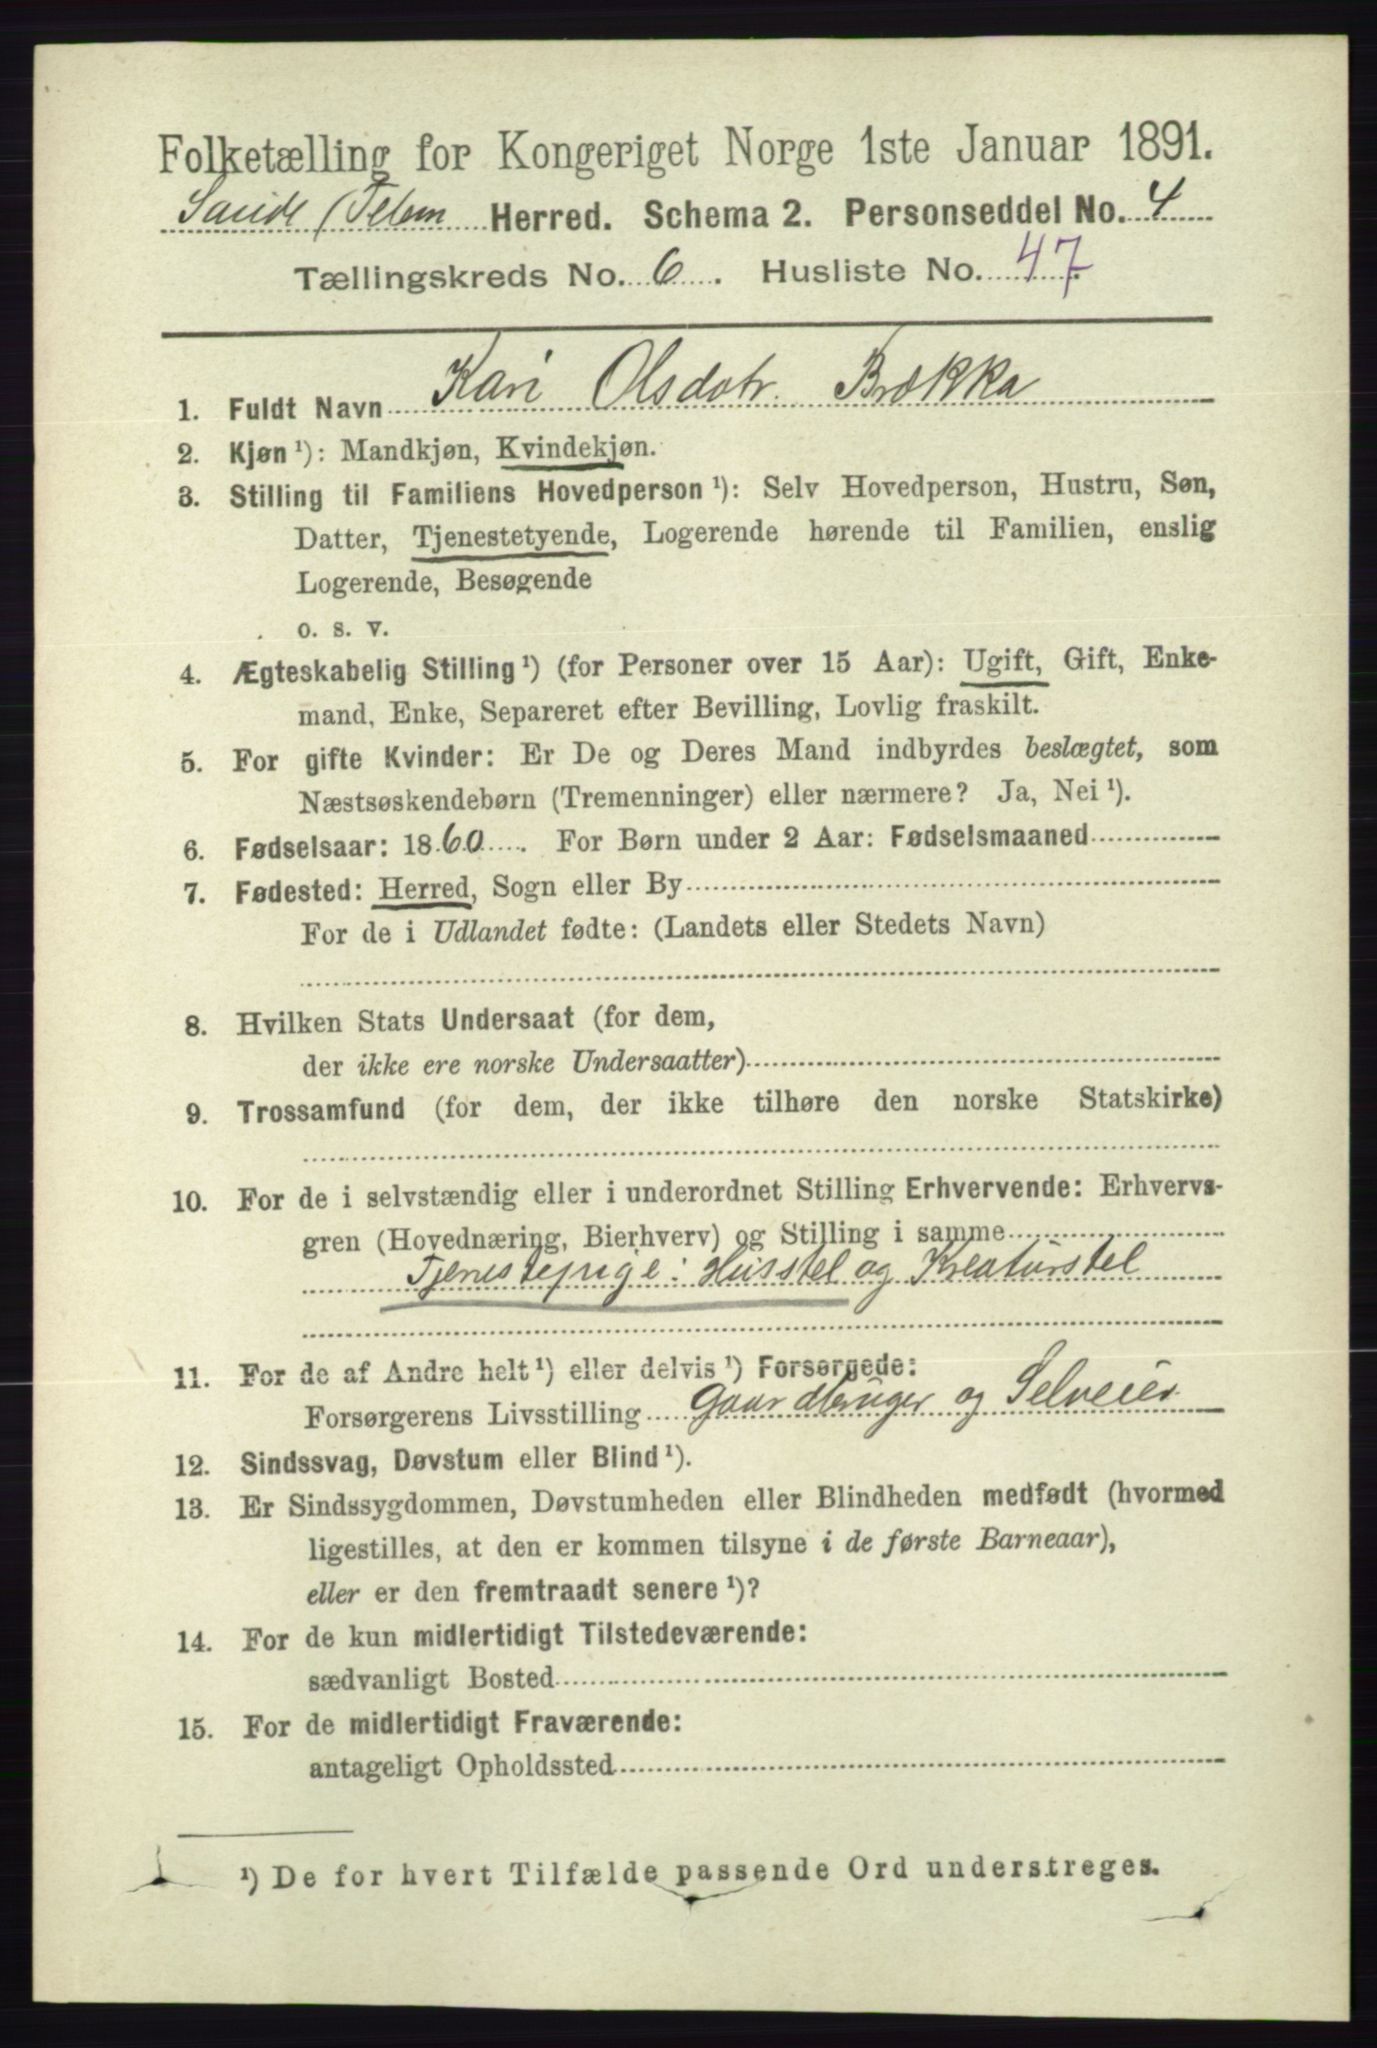 Folketælling for Kongeriget Norge 1ste Januar 1891.
Saude (Telem Herred. Schema 2. Personseddel No. 4
Tællingskreds No. 6. Husliste No. 47.
1. Fuldt Navn Kari Olsdotr. Brækka
2. Kjøn ¹): Mandkjøn, Kvindekjøn.
3. Stilling til Familiens Hovedperson ¹): Selv Hovedperson, Hustru, Søn,
Datter, Tjenestetyende, Logerende hørende til Familien, enslig
Logerende, Besøgende
o. s. v.
4. Ægteskabelig Stilling ¹) (for Personer over 15 Aar): Ugift, Gift, Enke-
mand, Enke, Separeret efter Bevilling, Lovlig fraskilt.
5. For gifte Kvinder: Er De og Deres Mand indbyrdes beslægtet, som
Næstsøskendebørn (Tremenninger) eller nærmere? Ja, Nei ¹).
6. Fødselsaar: 1860. For Børn under 2 Aar: Fødselsmaaned
7. Fødested: Herred, Sogn eller By
For de i Udlandet fødte: (Landets eller Stedets Navn)
8. Hvilken Stats Undersaat (for dem,
der ikke ere norske Undersaatter)
9. Trossamfund (for dem, der ikke tilhøre den norske Statskirke)
10. For de i selvstændig eller i underordnet Stilling Erhvervende: Erhvervs-
gren (Hovednæring, Bierhverv) og Stilling i samme
Tjenestepige: Husstel og Kreaturstel
11. For de af Andre helt ¹) eller delvis ¹) Forsørgede:
Forsørgerens Livsstilling Gaardbruger og Selveier
12. Sindssvag, Døvstum eller Blind ¹).
13. Er Sindssygdommen, Døvstumheden eller Blindheden medfødt (hvormed
ligestilles, at den er kommen tilsyne i de første Barneaar),
eller er den fremtraadt senere ¹)?
14. For de kun midlertidigt Tilstedeværende:
sædvanligt Bosted
15. For de midlertidigt Fraværende:
antageligt Opholdssted
¹) De for hvert Tilfælde passende Ord understreges.